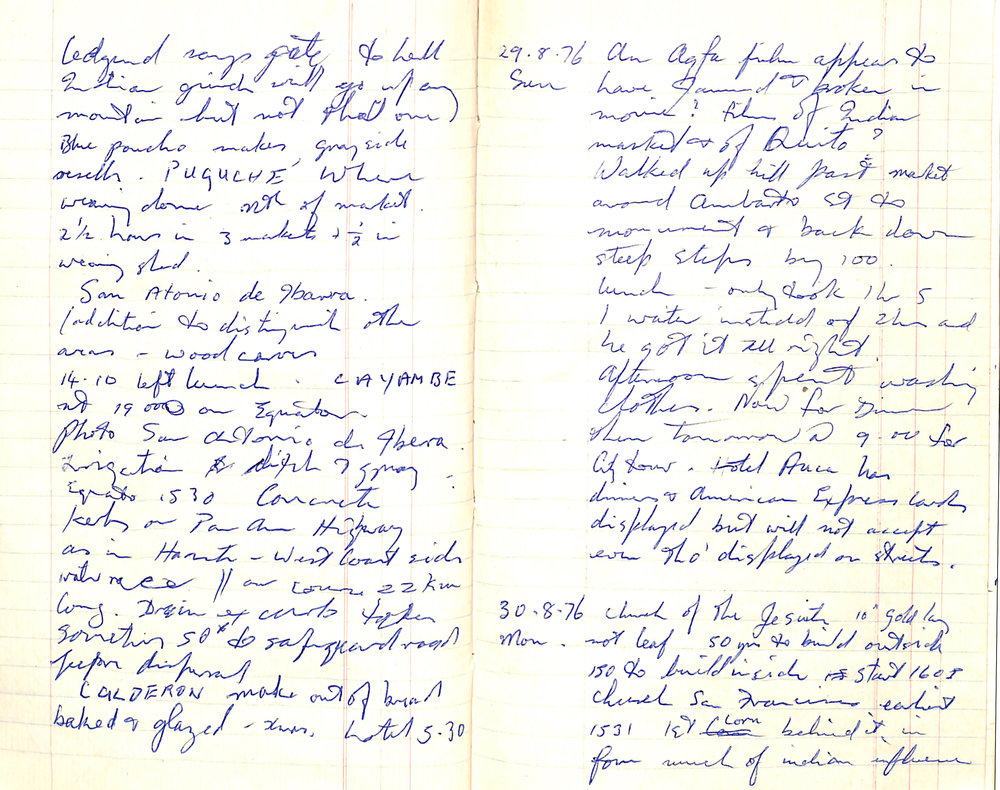 Ledgend says gate to hell
Indian guide will go up any
mountain but not that one)
Blue poncho makes, gray side
resells. PUGUCHE Where
weaving done nth of market.
2½ hours in 3 markets + ½ in
weaving shed.
San Atonio de Ibarra.
(addition to distinguish other
areas - wood carvers
14.10 left lunch. CAYAMBE
mt 19000 on Equator.
Photo San Antonio de Ibera.
Irrigation ditch
Equator 1530 Concrete
kerbs on Pan Am Highway
as in Harmth - West Coast side
water race // our course 22 km
long. Drain curbs taken
something 50' to safeguard road
before disposal
CALDERON make out of bread
baked & glazed - xmas. hotel 5-30
29.8.76 An Agfa film appears to
Sun have jammed & broken in
movie? film of Indian
market & of Quito?
Walked up hill past market
around Ambato St to
monument & back down
steep steps by 100.
Lunch - only took 1 hr 5
1 water instead of 2 hrs and
he got it all right.
Afternoon spent washing
clothes. Now for Dinner
then tomorrow 9.00 for
City tour. Hotel Auca has
diners & American Express cards
displayed but will not accept
even tho' displayed on streets.
30.8.76 Church of The Jesuits 10" gold
Mon. not leaf 50 yrs to build outside
150 to build inside start 1603
Church San Francisco earliest
1531 1st Corn behind it, in
form much of indian influence